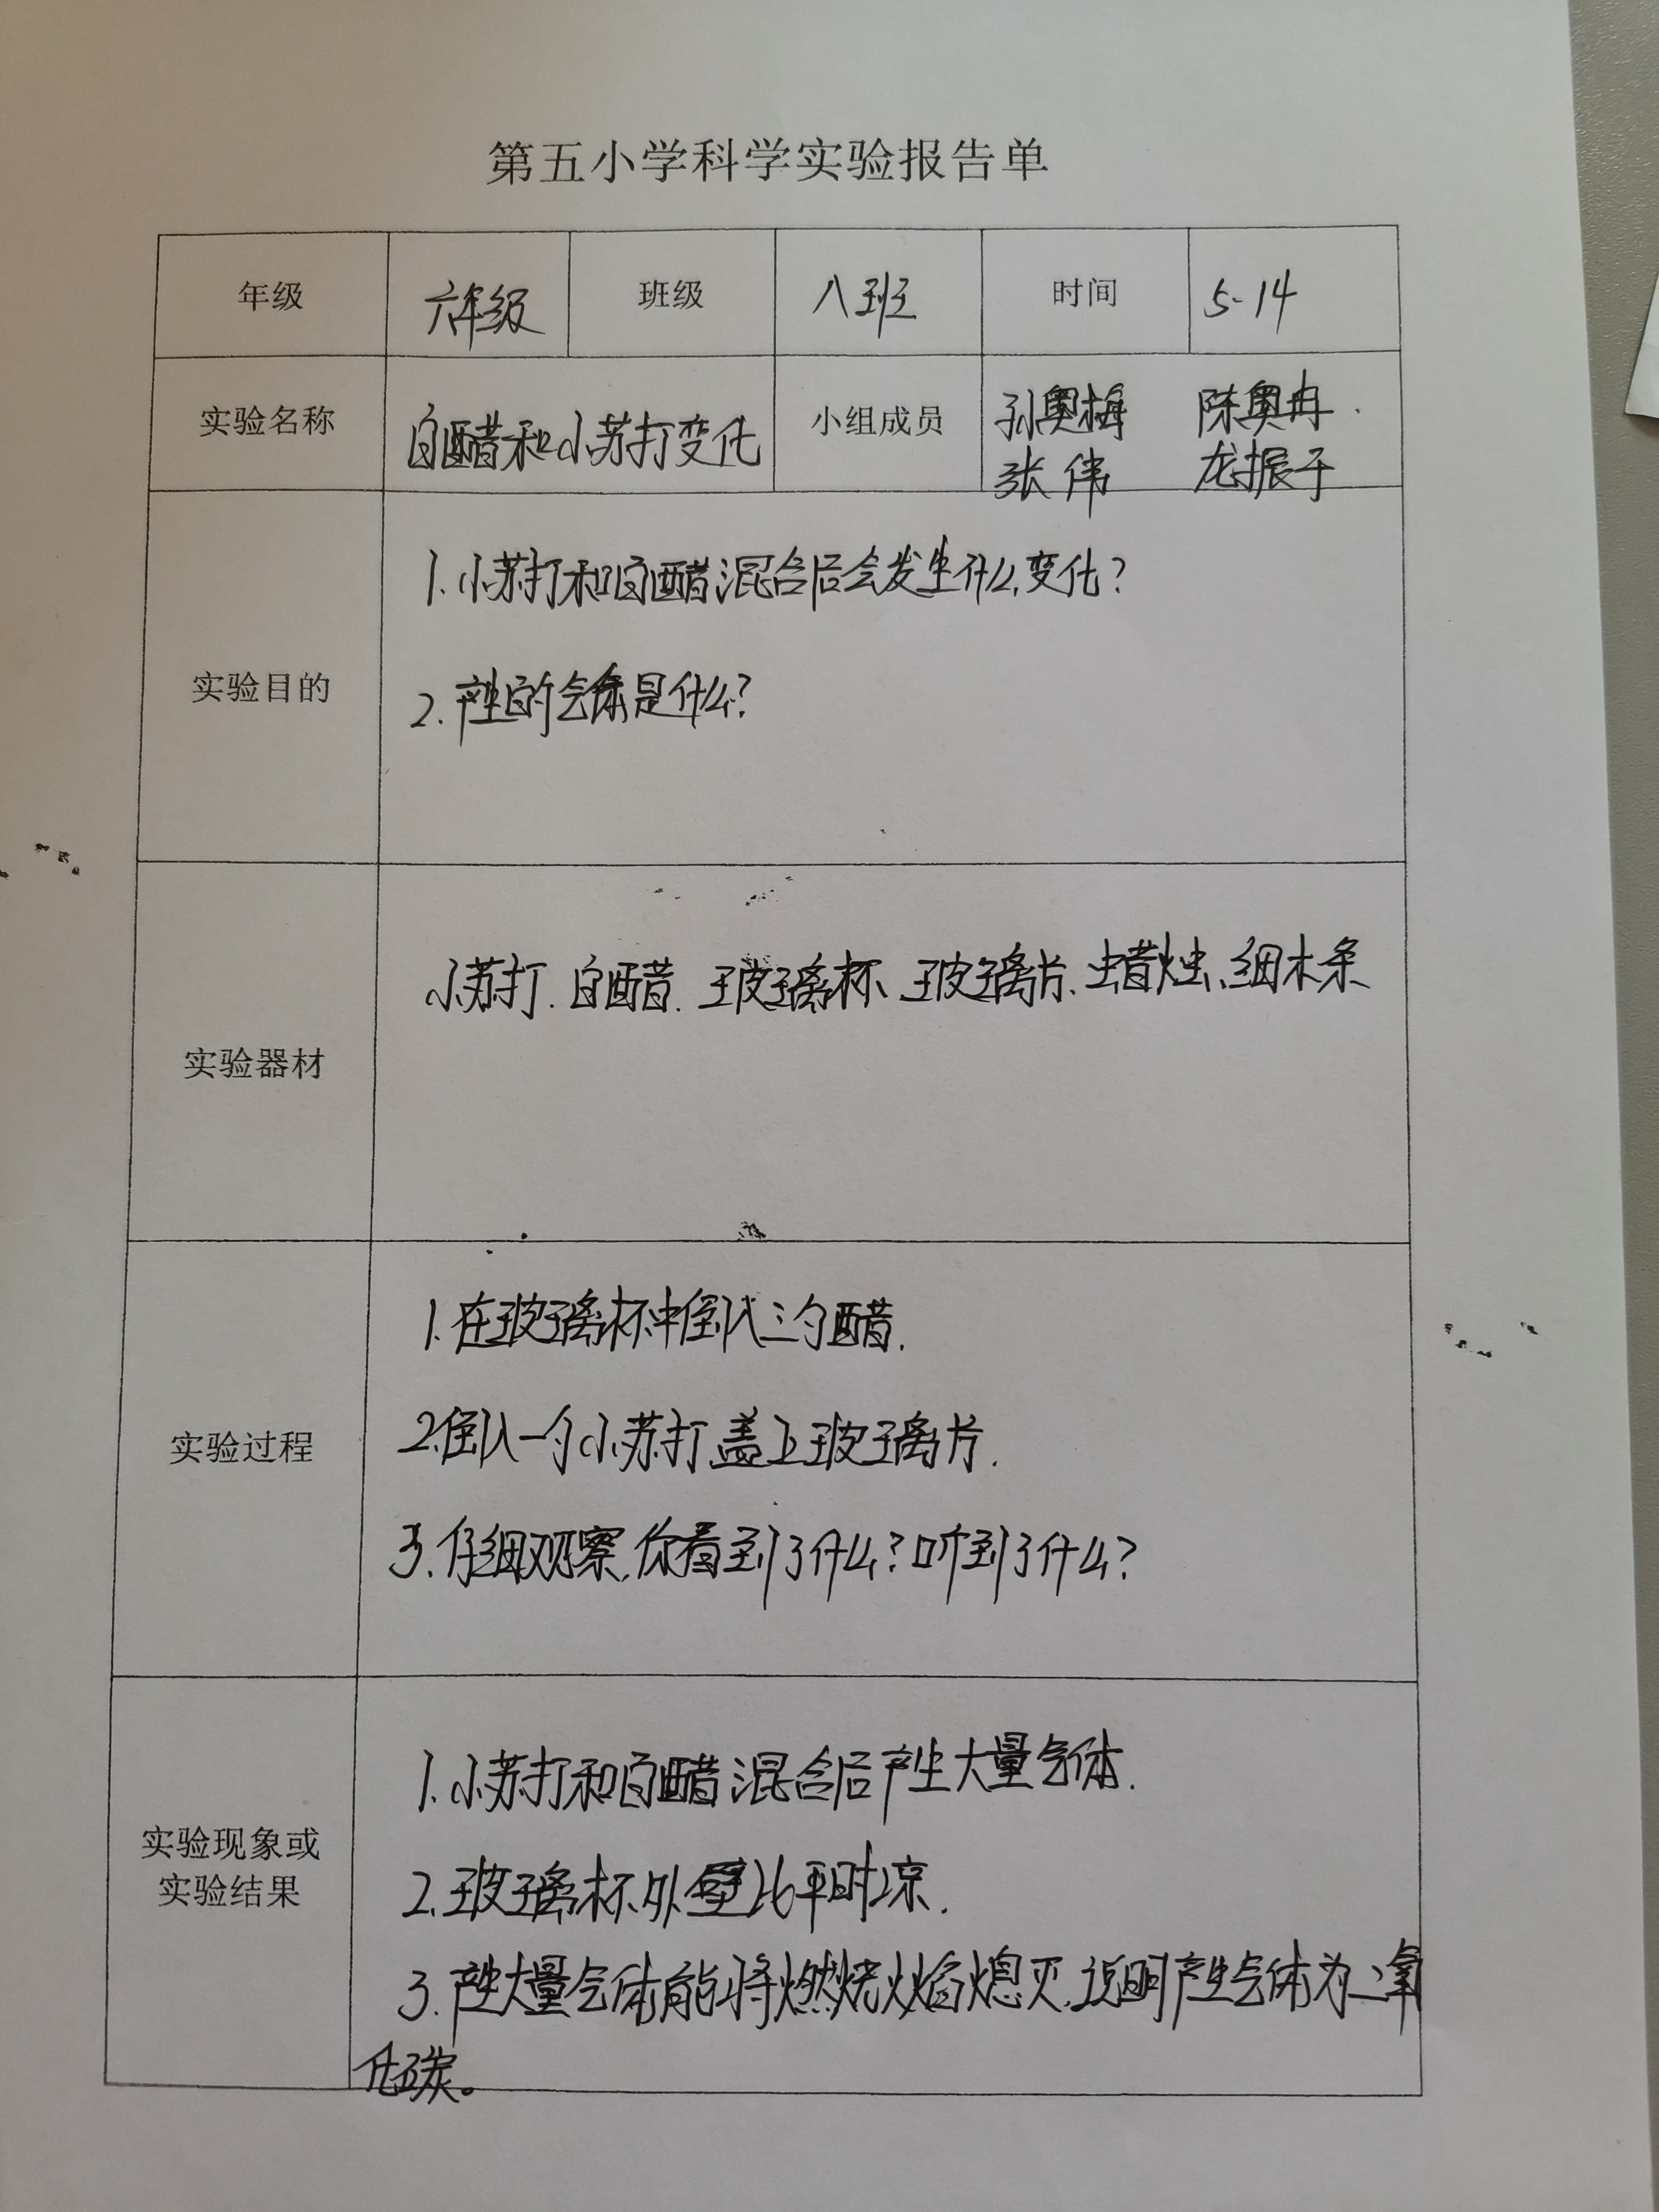 第五小学科学实验报告单
年级 六年级 班级 八班 时间 5-14
实验名称 白醋和小苏打变化 小组成员 孙奥梅 陈奥冉
张伟 龙振于
1.小苏打和白醋混合后会发生什么变化?
实验目的
2.产生的气体是什么?
小苏打.白醋.玻璃杯、玻璃片、蜡烛、细木条
实验器材
1.在玻璃杯中倒入三勺醋.
2.倒入一勺小苏打,盖上玻璃片.
实验过程
3.仔细观察,你看到了什么?听到了什么?
1.小苏打和白醋混合后产生大量气体.
实验现象或
实验结果
2.玻璃杯外壁比平时凉.
3.产生大量气体能将燃烧火焰熄灭,说明产生气体为二氧
化碳。